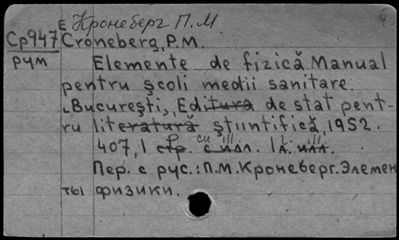 Е Кронеберг П.М
Ср947 Croneberg, P.M.
рум Elemente de fizică. Manual
pentru şcoli medii sanitare.
[Bucureşti], Editura de stat pent-
ru literatură ştiintifică, 1952.
407, 1 стр. с илл. 1 л. илл.
Пер. с рус.: П.М. Кронеберг. Элемен
ты физики.